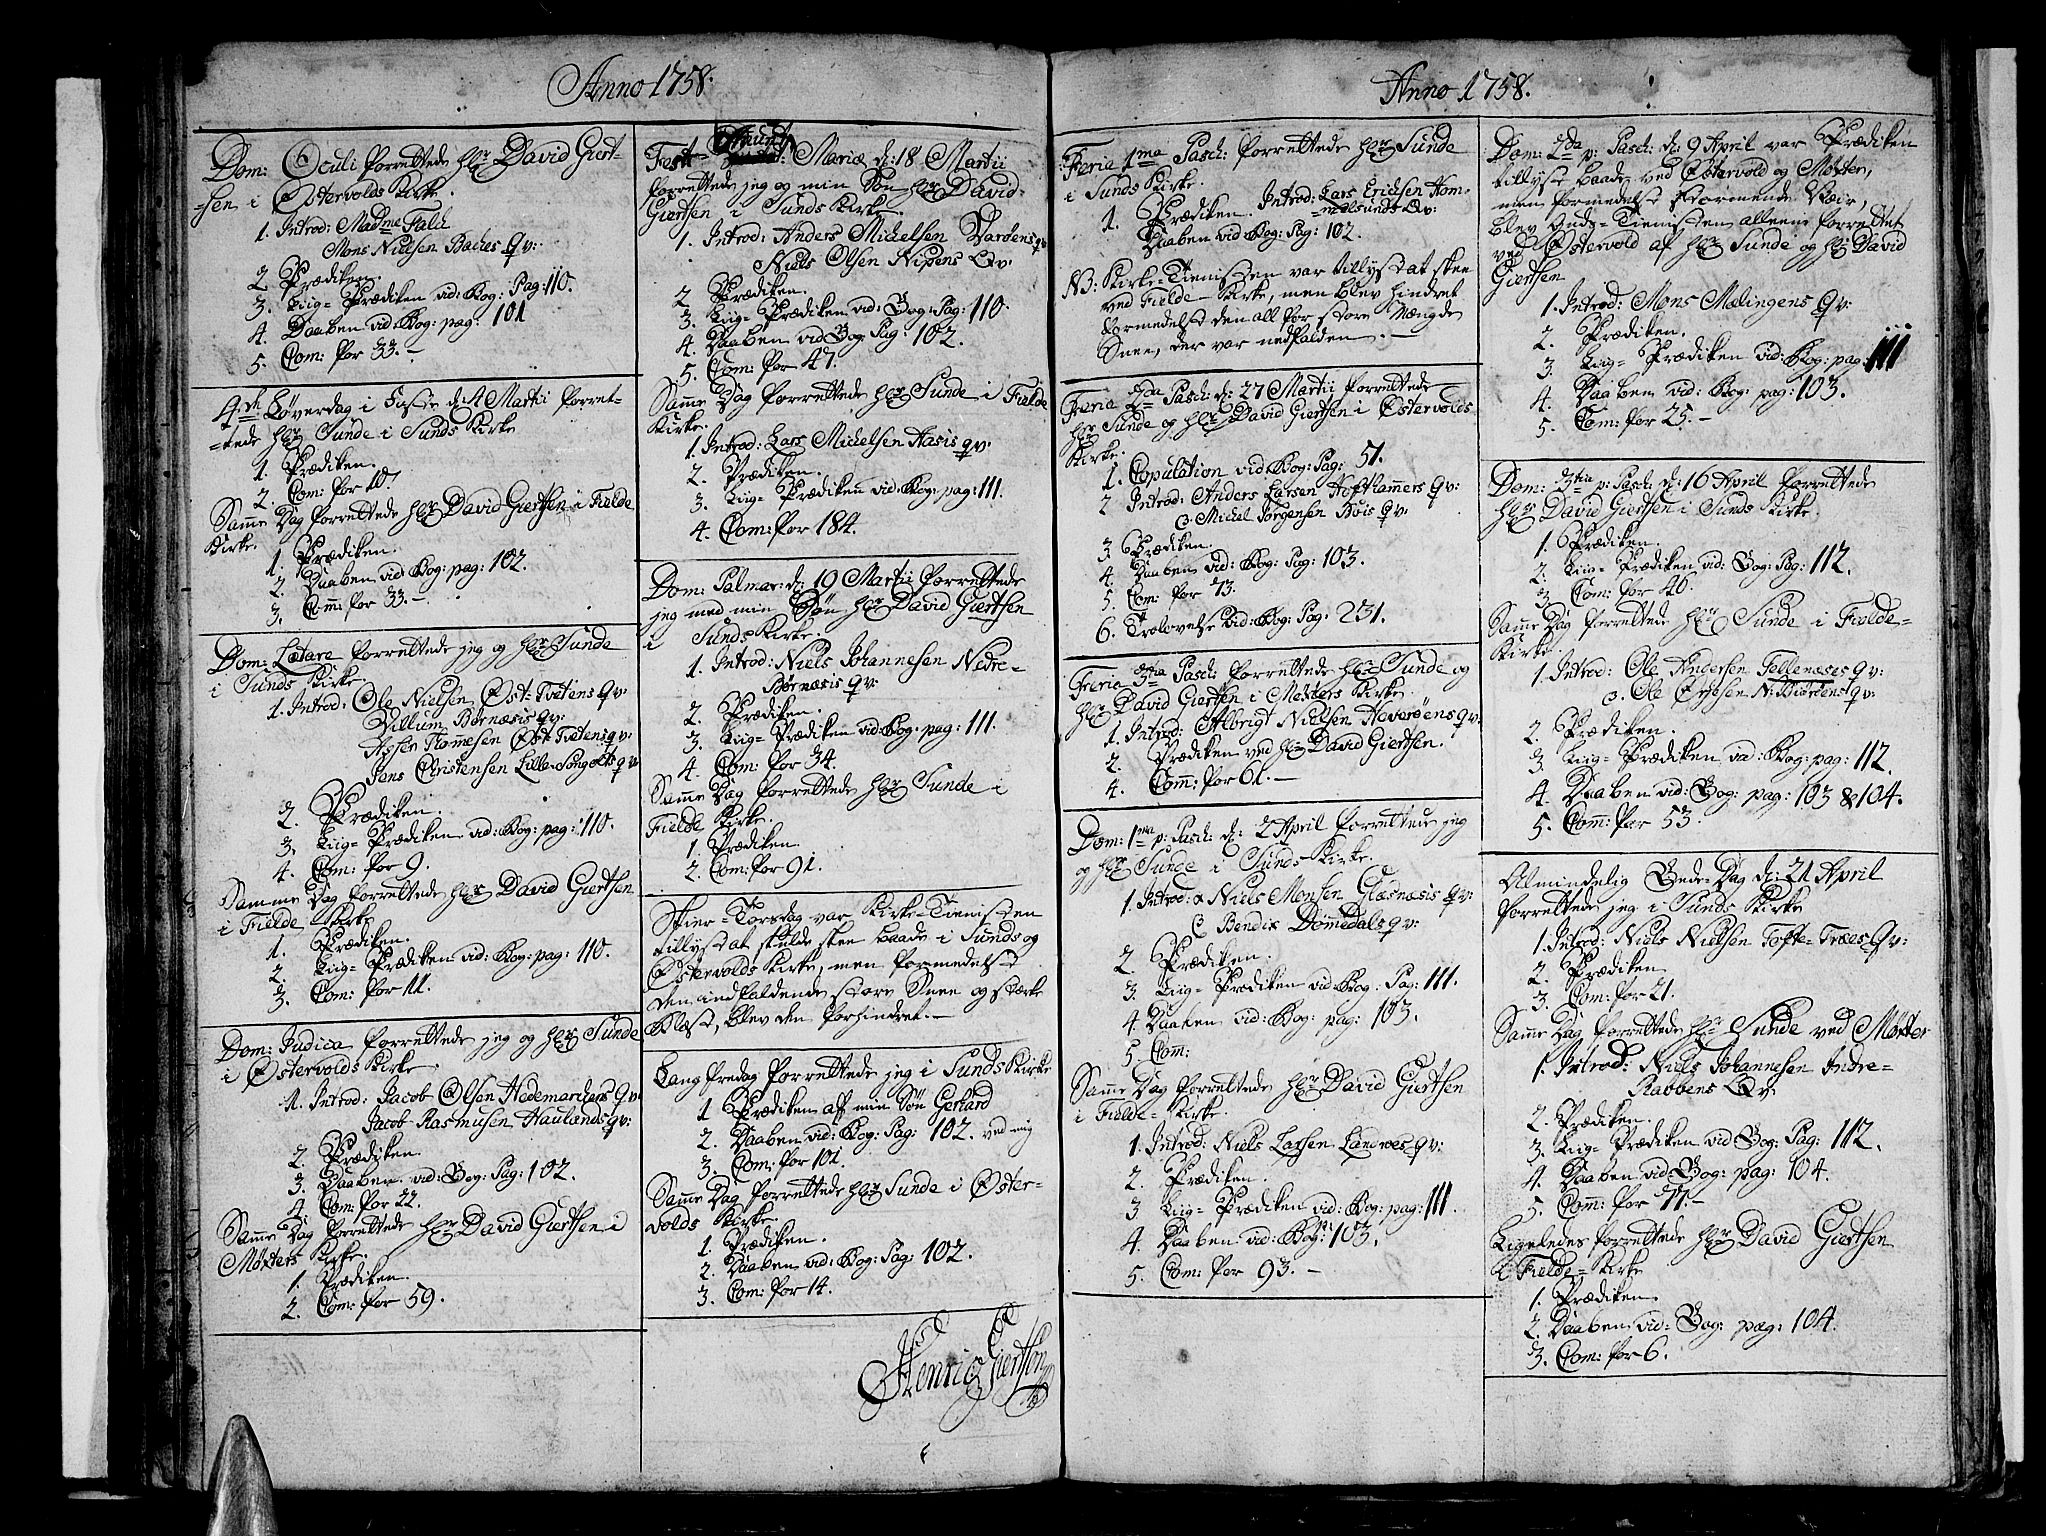 Anno 1758.
Dom: Oculi forrettede Hr David Giert-
sen i Østervolds Kirke.
1. Introd: Madme Falch
Mons Nielsen Backes Qv:
2 Prædiken.
3. Liig-Prædiken vid: Bog: Pag: 110.
4. Daaben vid: Bog: pag: 101
5. Com: for 33.-
4de Løverdag i Faste d: Martii forret-
tede Hr Sunde i Sunds Kirke
1. Prædiken.
2. Com: for 107
Samme Dag forrettede Hr David Giertsen i Fielde
Kirke.
1. Prædiken.
2. Daaben vid: Bog: pag: 102.
3. Com: for 33.-
Dom: Lætare forrettede jeg og Hr Sunde
i Sunds Kirke
1. Introd: Ole Nielsen Øst-Tvetens Qv:
Villum Børnæsis Qv:
Assen Thommesen Øst-Tvetens qv:
Jens Christensen Lille-Songolts qv:
2. Prædiken.
3. Liig-Prædiken vid: Bog: pag: 110.
4. Com: for 9.
Samme Dag forrettede Hr David Giertsen
i Fielde Kirke
1. Prædiken.
2. Liig-Prædiken vid: Bog: pag: 110.
3. Com: for 11.
Dom: Iudica forrettede jeg og Hr Sunde
i Østervolds Kirke
1. Introd: Jacob Olsen Hedemarckers Qv:
Jacob Rasmusen Haulands qv:
2. Prædiken.
3. Daaben vid: Bog: Pag: 102.
4. Com: for 22.
Samme Dag forrettede Hr David Giertsen i
Møxters Kirke.
1. Prædiken.
2. Com: for 59.
Festo Annunt: Mariæ d: 18 Martii
forrettede jeg og min Søn Hr David
Giertsen i Sunds Kirke
1. Introd: Anders Michelsen Varøens qv
Niels Olsen Nipens Qv:
2 Prædiken.
3. Liig-Prædiken vid: Bog: Pag: 110.
4. Daaben vid Bog: Pag: 102.
5. Com: for 47.
Samme Dag forrettede Hr Sunde i Fielde
Kirke.
1. Introd: Lars Michelsen Hasis qv:
2. Prædiken.
3. Liig-Prædiken vid: Bog: pag: 111.
4. Com: for 184.
Dom: Palmar: d: 19 Martii forrettede
jeg med min Søn Hr David Giertsen
i Sunds Kirke.
1. Introd: Niels Johannesen Nedre-
Børnæsis qv:
2. Prædiken.
3. Liig-Prædiken vid: Bog: pag: 111.
4. Com: for 34.
Samme Dag forrettede Hr Sunde i
Fielde Kirke.
1. Prædiken.
2. Com: for 91.
Skier-Torsdag var Kirke-Tienisten
tillyst at skulde skee baade i Sunds og
Østervolds Kirke, men formedelst
den indfaldende store Snee og stærke
Blæst, blev den forhindret.-
Lang fredag forrettede jeg i Sunds Kirke
1 Prædiken af min Søn Gerhard
2. Daaben vid: Bog: Pag: 102. ved mig
3. Com: for 101.
Samme Dag forrettede Hr Sunde i Øster-
volds Kirke.
1. Prædiken.
2. Daaben vid: Bog: Pag: 102.
3. Com: for 14.
Henric Giertsen
Anno 1758.
Feria 1ma Pasch: forrettede Hr Sunde
i Sunds Kirke.
1. Prædiken. Introd: Lars Erichsen Hom-
melsunds Qv:
Daaben vid: Bog: Pag: 102.
NB: Kirke-Tienisten var tillyst at skee
ved Fielde Kirke, men blev hindret
formedelst den alt for store Mængde
Snee, der var nedfalden.-
Feria 2da Pasch: d: 27 Martii forrettede
Hr Sunde og Hr David Giertsen i Østervolds
Kirke.
1. Copulation vid: Bog: Pag: 51.
2 Introd: Anders Larsen Hofthammers Qv:
Michel Jørgensen Bøis qv:
3 Prædiken.
4. Daaben vid: Bog: Pag: 103.
5. Com: for 73.
6. Trolovelse vid: Bog: Pag: 231.
Feria 3tia Pasch: forrettede Hr Sunde og
Hr David Giertsen i Møxters Kirke
1. Introd: Albrigt Nielsen Heverøens qv:
2. Prædiken ved Hr David Giertsen.
4. Com: for 61.-
Dom: 1ma p: Pasch: d: 2 April forrettede jeg
og Hr Sunde i Sunds Kirke.
1. Introd: Niels Monsen Glæsnæsis qv:
Bendix Dommedals qv:
2. Prædiken.
3. Liig-Prædiken vid: Bog: Pag: 111.
4. Daaben vid: Bog: pag: 103.
5. Com:
Samme Dag forrettede Hr David Giertsen
i Fielde-Kirke.
1. Introd: Niels Larsen Landroes qv:
2. Prædiken.
3 Liig-Prædiken vid: Bog: pag: 111.
4. Daaben vid: Bog: 103.
5. Com: for 93.-
Dom: 2da p: Pasch: d: 9 April var Prædiken
tillyst baade ved Østervold og Møxter,
men formedelst stormende Veir,
blev Guds-Tienisten alleene forrettet
ved Østervold af Hr Sunde og Hr David
Giertsen
1. Introd: Mons Mælingens Qv:
2. Prædiken.
3. Liig-Prædiken vid: Bog: pag: 111
4. Daaben vid: Bog: pag: 103.
5. Com: for 25.-
Dom: 3tia p: Pasch: d: 16 April forrettede
Hr David Giertsen i Sunds Kirke.
1. Prædiken.
2. Liig-Prædiken vid: Bog: Pag: 112.
3. Com: for 46.
Samme Dag forrettede Hr Sunde i Fielde-
Kirke.
1. Introd: Ole Andersen Tellenæsis qv:
Ole N: Biørtens qv:
2. Prædiken.
3. Liig-Prædiken vid: Bog: pag: 112.
4. Daaben vid: Bog: pag: 103 & 104.
5. Com: for 53.
Almindelig Bede-Dag d: 21 April
forrettede jeg i Sunds Kirke
1. Introd: Niels Nielsen Tofte-Træes Qv:
2. Prædiken
3. Com: for 21.
Samme Dag forrettede Hr Sunde ved Møxter
1. Introd: Niels Johannesen Indre-
Rabbens Qv:
2. Prædiken.
3. Liig-Prædiken vid Bog: Pag: 112.
4. Daaben vid: Bog: pag: 104.
5. Com: for 77.-
Ligeledes forrettede Hr David Giertsen
i Fielde-Kirke
1. Prædiken.
2. Daaben vid: Bog: pag: 104.
3. Com: for 6.